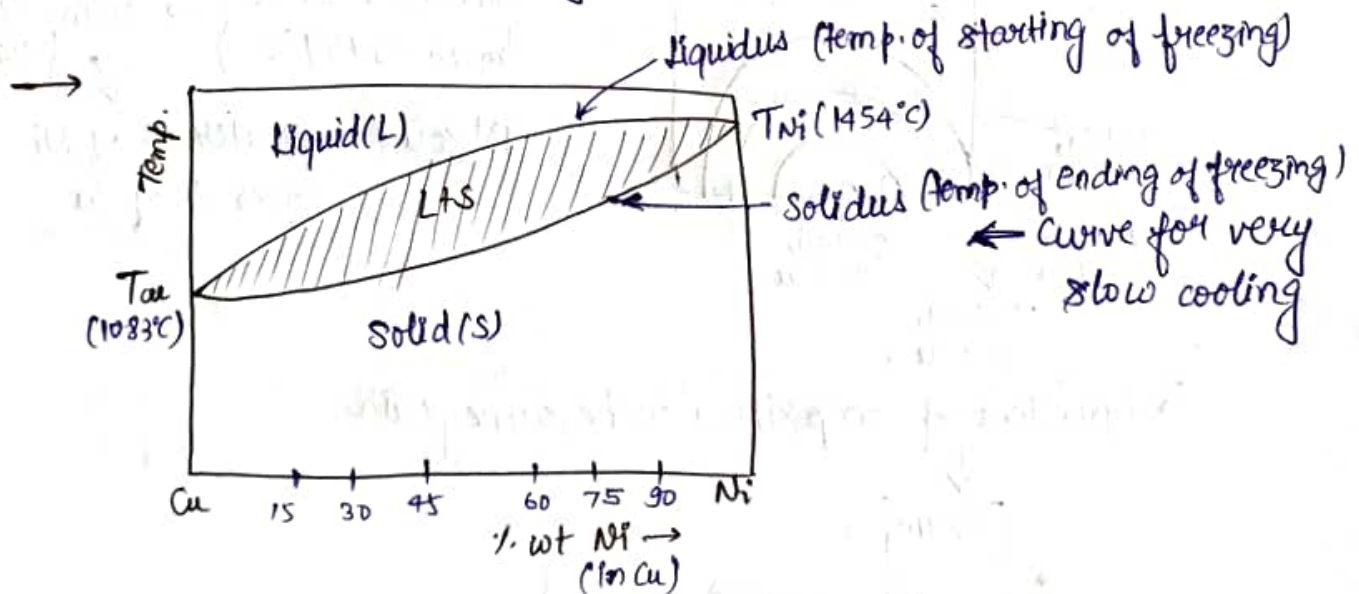 Liquidus (temp. of starting of freezing)
→
Temp.
Liquid (L)
TNi (1454°C)
L+S
Solidus (temp. of ending of freezing)
← Curve for very
slow cooling
TCu
(1083°C)
Solid (S)
Cu 15 30 45 60 75 90 Ni
% wt Ni →
(in Cu)